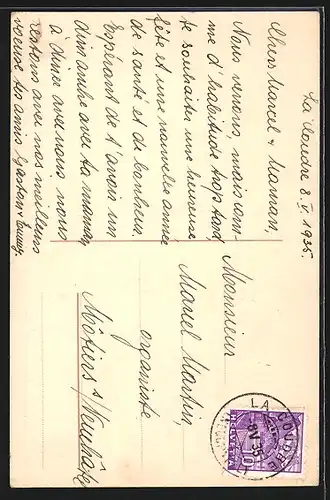 La Coudre 8. V. 1935.
Cher Marcel & Maman,
Nous venons, mais com-
me d'habitude trop tard,
te souhaiter une heureuse
fête et une nouvelle année
de santé et de bonheur.
Espérant de t'avoir un
dimanche avec ta maman
à dîner avec nous, nous
restons avec nos meilleurs
voeux tes amis Gaston & Emmy.
Monsieur
Marcel Martin,
organiste
Môtiers s/ Neuchâtel
LA COUDRE
8 V 35
(NEUCHÂTEL)
HELVETIA
10